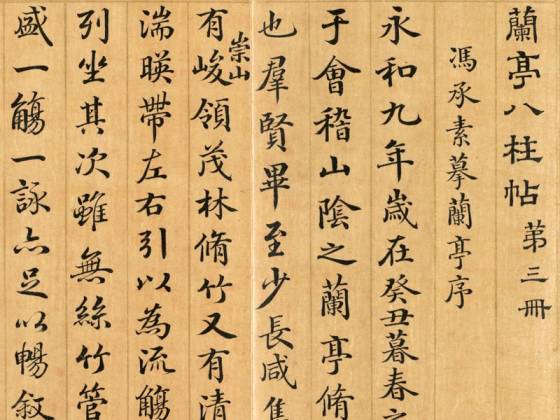 蘭亭八柱帖 第三冊
馮承素摹蘭亭序
永和九年歲在癸丑暮春之
于會稽山陰之蘭亭脩
也羣賢畢至少長咸集
有崇山峻領茂林脩竹又有清
湍暎帶左右引以為流觴
列坐其次雖無絲竹管
盛一觴一詠亦足以暢叙